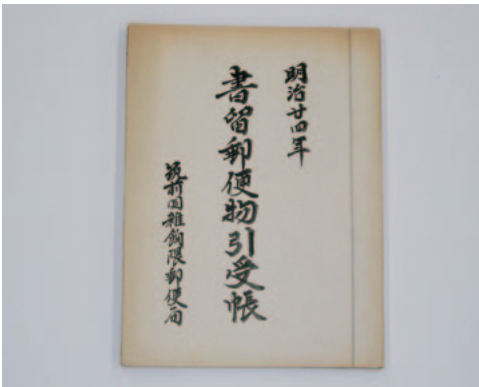 明治廿四年
書留郵便物引受帳
筑前国雑餉隈郵便局